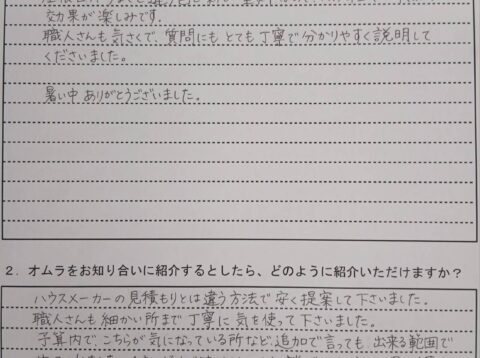 効果が楽しみです.
職人さんも気さくで、質問にもとても丁寧で分かりやすく説明して
くださいました。
暑い中ありがとうございました。
2. オムラをお知り合いに紹介するとしたら、どのように紹介いただけますか？
ハウスメーカーの見積もりとは違う方法で安く提案して下さいました。
職人さんも細かい所まで丁寧に気を使って下さいました。
予算内で、こちらが気になっている所など、追加で言っても、出来る範囲で